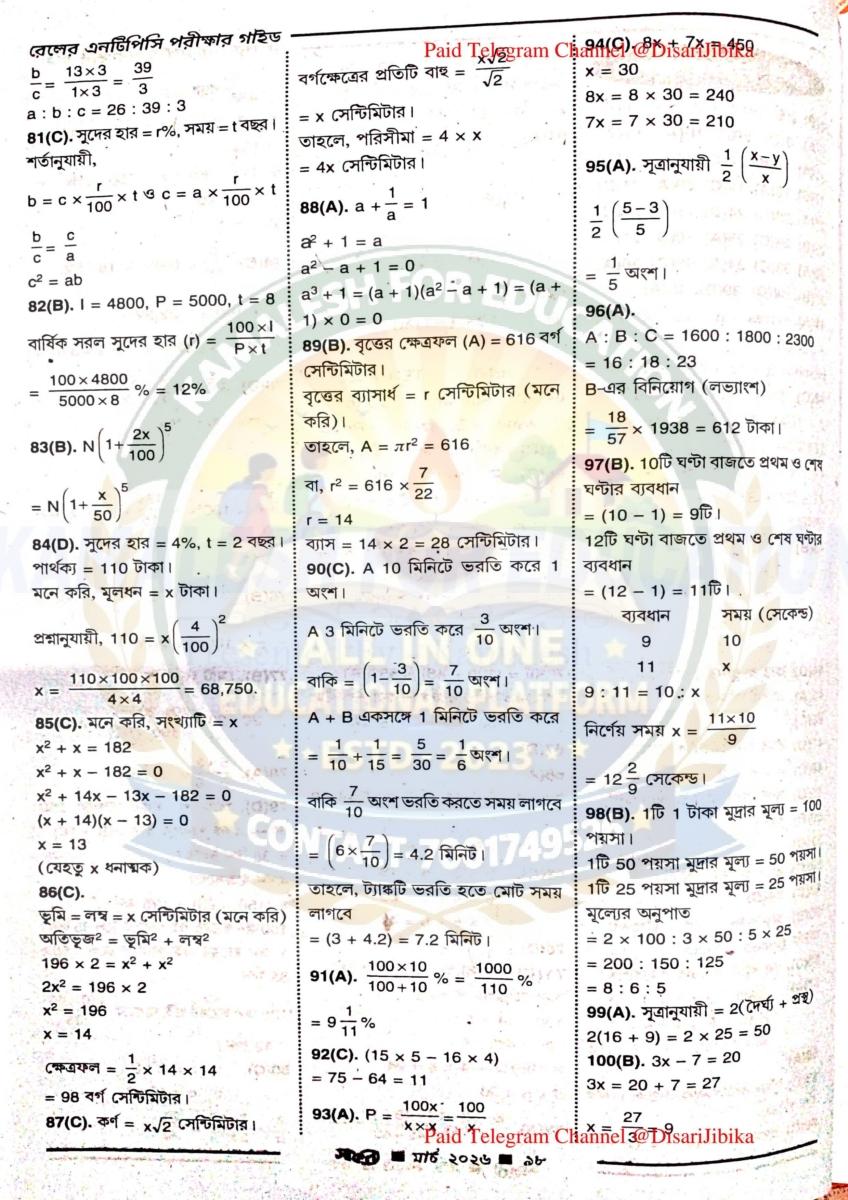 রেলের এনটিপিসি পরীক্ষার গাইড
Paid Telegram Channel @DisariJibika
b/c = 13 × 3 / 1 × 3 = 39/3
a : b : c = 26 : 39 : 3
81(C). সুদের হার = r%, সময় = t বছর।
শর্তানুযায়ী,
b = c × r/100 × t ও c = a × r/100 × t
b/c = c/a
c² = ab
82(B). I = 4800, P = 5000, t = 8
বার্ষিক সরল সুদের হার (r) = 100 × I / P × t
= 100 × 4800 / 5000 × 8 % = 12%
83(B). N(1 + 2x/100)⁵
= N(1 + x/50)⁵
84(D). সুদের হার = 4%, t = 2 বছর।
পার্থক্য = 110 টাকা।
মনে করি, মূলধন = x টাকা।
প্রশ্নানুযায়ী, 110 = x(4/100)²
x = 110 × 100 × 100 / 4 × 4 = 68,750.
85(C). মনে করি, সংখ্যাটি = x
x² + x = 182
x² + x – 182 = 0
x² + 14x – 13x – 182 = 0
(x + 14)(x – 13) = 0
x = 13
(যেহেতু x ধনাত্মক)
86(C).
ভূমি = লম্ব = x সেন্টিমিটার (মনে করি)
অতিভূজ² = ভূমি² + লম্ব²
196 × 2 = x² + x²
2x² = 196 × 2
x² = 196
x = 14
ক্ষেত্রফল = 1/2 × 14 × 14
= 98 বর্গ সেন্টিমিটার।
87(C). কর্ণ = x√2 সেন্টিমিটার।
বর্গক্ষেত্রের প্রতিটি বাহু = x√2 / √2
= x সেন্টিমিটার।
তাহলে, পরিসীমা = 4 × x
= 4x সেন্টিমিটার।
88(A). a + 1/a = 1
a² + 1 = a
a² – a + 1 = 0
a³ + 1 = (a + 1)(a² – a + 1) = (a +
1) × 0 = 0
89(B). বৃত্তের ক্ষেত্রফল (A) = 616 বর্গ
সেন্টিমিটার।
বৃত্তের ব্যাসার্ধ = r সেন্টিমিটার (মনে
করি)।
তাহলে, A = πr² = 616
বা, r² = 616 × 7/22
r = 14
ব্যাস = 14 × 2 = 28 সেন্টিমিটার।
90(C). A 10 মিনিটে ভরতি করে 1
অংশ।
A 3 মিনিটে ভরতি করে 3/10 অংশ।
বাকি = (1 – 3/10) = 7/10 অংশ।
A + B একসঙ্গে 1 মিনিটে ভরতি করে
= 1/10 + 1/15 = 5/30 = 1/6 অংশ।
বাকি 7/10 অংশ ভরতি করতে সময় লাগবে
= (6 × 7/10) = 4.2 মিনিট।
তাহলে, ট্যাঙ্কটি ভরতি হতে মোট সময়
লাগবে
= (3 + 4.2) = 7.2 মিনিট।
91(A). 100 × 10 / 100 + 10 % = 1000/110 %
= 9 1/11 %
92(C). (15 × 5 – 16 × 4)
= 75 – 64 = 11
93(A). P = 100x / x × x = 100/x
94(C). 8x + 7x = 450
x = 30
8x = 8 × 30 = 240
7x = 7 × 30 = 210
95(A). সূত্রানুযায়ী 1/2 (x – y / x)
1/2 (5 – 3 / 5)
= 1/5 অংশ।
96(A).
A : B : C = 1600 : 1800 : 2300
= 16 : 18 : 23
B-এর বিনিয়োগ (লভ্যাংশ)
= 18/57 × 1938 = 612 টাকা।
97(B). 10টি ঘণ্টা বাজতে প্রথম ও শেষ
ঘণ্টার ব্যবধান
= (10 – 1) = 9টি।
12টি ঘণ্টা বাজতে প্রথম ও শেষ ঘণ্টার
ব্যবধান
= (12 – 1) = 11টি।
ব্যবধান সময় (সেকেন্ড)
9 10
11 x
9 : 11 = 10 : x
নির্ণেয় সময় x = 11 × 10 / 9
= 12 2/9 সেকেন্ড।
98(B). 1টি 1 টাকা মুদ্রার মূল্য = 100
পয়সা।
1টি 50 পয়সা মুদ্রার মূল্য = 50 পয়সা।
1টি 25 পয়সা মুদ্রার মূল্য = 25 পয়সা।
মূল্যের অনুপাত
= 2 × 100 : 3 × 50 : 5 × 25
= 200 : 150 : 125
= 8 : 6 : 5
99(A). সূত্রানুযায়ী = 2(দৈর্ঘ্য + প্রস্থ)
2(16 + 9) = 2 × 25 = 50
100(B). 3x – 7 = 20
3x = 20 + 7 = 27
x = 27/3 = 9
Paid Telegram Channel @DisariJibika
■ মার্চ ২০২৬ ■ ৯৮
ALL IN ONE
EDUCATIONAL PLATFORM
ESTD. 2023